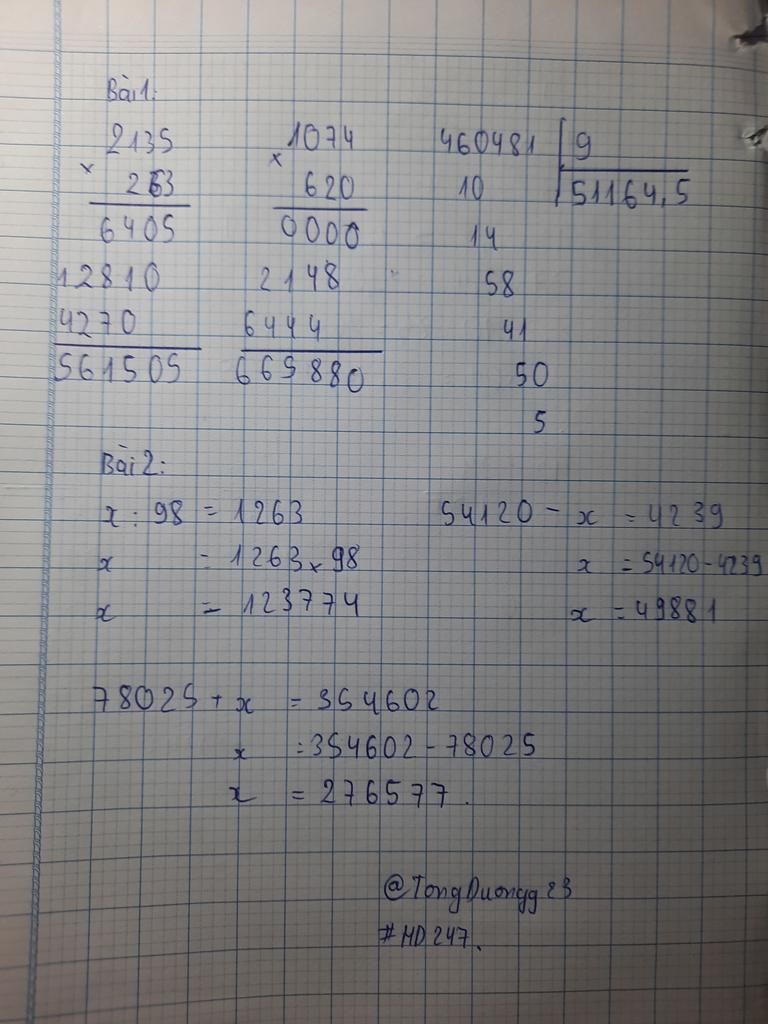 Bài 1:
2135 1074 460481 9
x 263 x 620 10 51164,5
6405 0000 14
12810 2148 58
4270 6444 41
561505 665880 50
5
Bài 2:
x : 98 = 1263 54120 - x = 4239
x = 1263 x 98 x = 54120 - 4239
x = 123774 x = 49881
78025 + x = 354602
x = 354602 - 78025
x = 276577.
@TongDuongg23
#HD247.